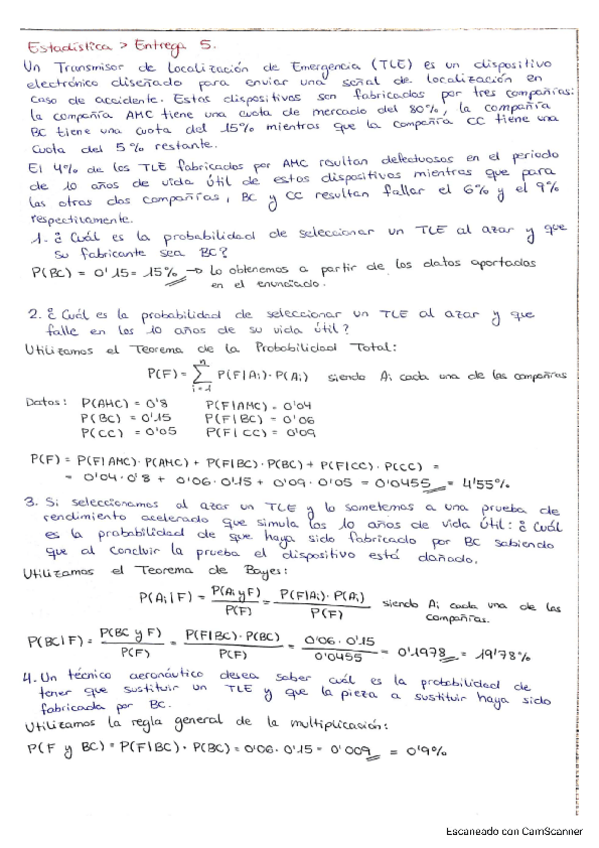 Estadística > Entrega 5.
Un Transmisor de Localización de Emergencia (TLE) es un dispositivo
electrónico diseñado para enviar una señal de localización en
caso de accidente. Estos dispositivos son fabricados por tres compañías:
la compañía AMC tiene una cuota de mercado del 80%, la compañía
BC tiene una cuota del 15% mientras que la compañía CC tiene una
cuota del 5% restante.
El 4% de los TLE fabricados por AMC rsultan defectuosos en el periodo
de 10 años de vida útil de estos dispositivos mientras que para
las otras dos compañías, BC y CC resultan fallar el 6% y el 9%
respectivamente.
1. ¿Cuál es la probabilidad de seleccionar un TLE al azar y que
su fabricante sea BC?
P(BC) = 0'15 = 15% → Lo obtenemos a partir de los datos aportados
en el enunciado.
2. ¿Cuál es la probabilidad de seleccionar un TLE al azar y que
falle en los 10 años de su vida útil?
Utilizamos el Teorema de la Probabilidad Total:
P(F) = Σ_{i=1}^{n} P(F|Ai)·P(Ai) siendo Ai cada una de las compañías
Datos: P(AMC) = 0'8 P(F|AMC) = 0'04
P(BC) = 0'15 P(F|BC) = 0'06
P(CC) = 0'05 P(F|CC) = 0'09
P(F) = P(F|AMC)·P(AMC) + P(F|BC)·P(BC) + P(F|CC)·P(CC) =
= 0'04·0'8 + 0'06·0'15 + 0'09·0'05 = 0'0455 = 4'55%
3. Si seleccionamos al azar un TLE y lo sometemos a una prueba de
rendimiento acelerado que simula los 10 años de vida útil: ¿Cuál
es la probabilidad de que haya sido fabricado por BC sabiendo
que al concluir la prueba el dispositivo está dañado.
Utilizamos el Teorema de Bayes:
P(Ai|F) = P(Ai y F)/P(F) = P(F|Ai)·P(Ai)/P(F) siendo Ai cada una de las
compañías.
P(BC|F) = P(BC y F)/P(F) = P(F|BC)·P(BC)/P(F) = 0'06·0'15/0'0455 = 0'1978 = 19'78%
4. Un técnico aeronáutico desea saber cuál es la probabilidad de
tener que sustituir un TLE y que la pieza a sustituir haya sido
fabricada por BC.
Utilizamos la regla general de la multiplicación:
P(F y BC) = P(F|BC)·P(BC) = 0'06·0'15 = 0'009 = 0'9%
Escaneado con CamScanner